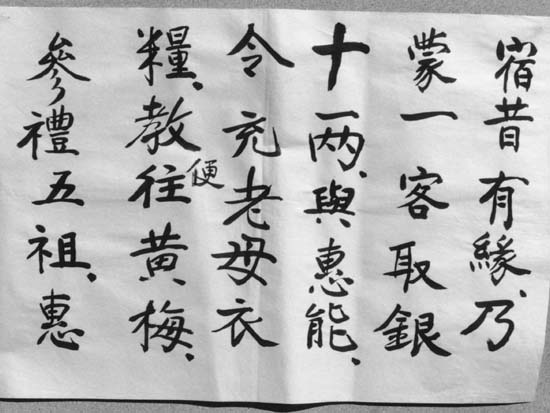 宿昔有緣、乃
蒙一客取銀
十一两、與惠能、
令充老母衣
糧、教便往黃梅、
參禮五祖、惠